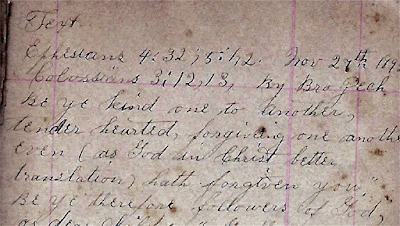 Text
Ephesians 4:32; 5:1,2. Nov 27th 189
Colossians 3:12,13, By Bro
Be ye kind one to another,
tender hearted, forgiving one anothe
even (as God in Christ better
translation) hath forgiven you,"
Be ye therefore followers of God,
as dear